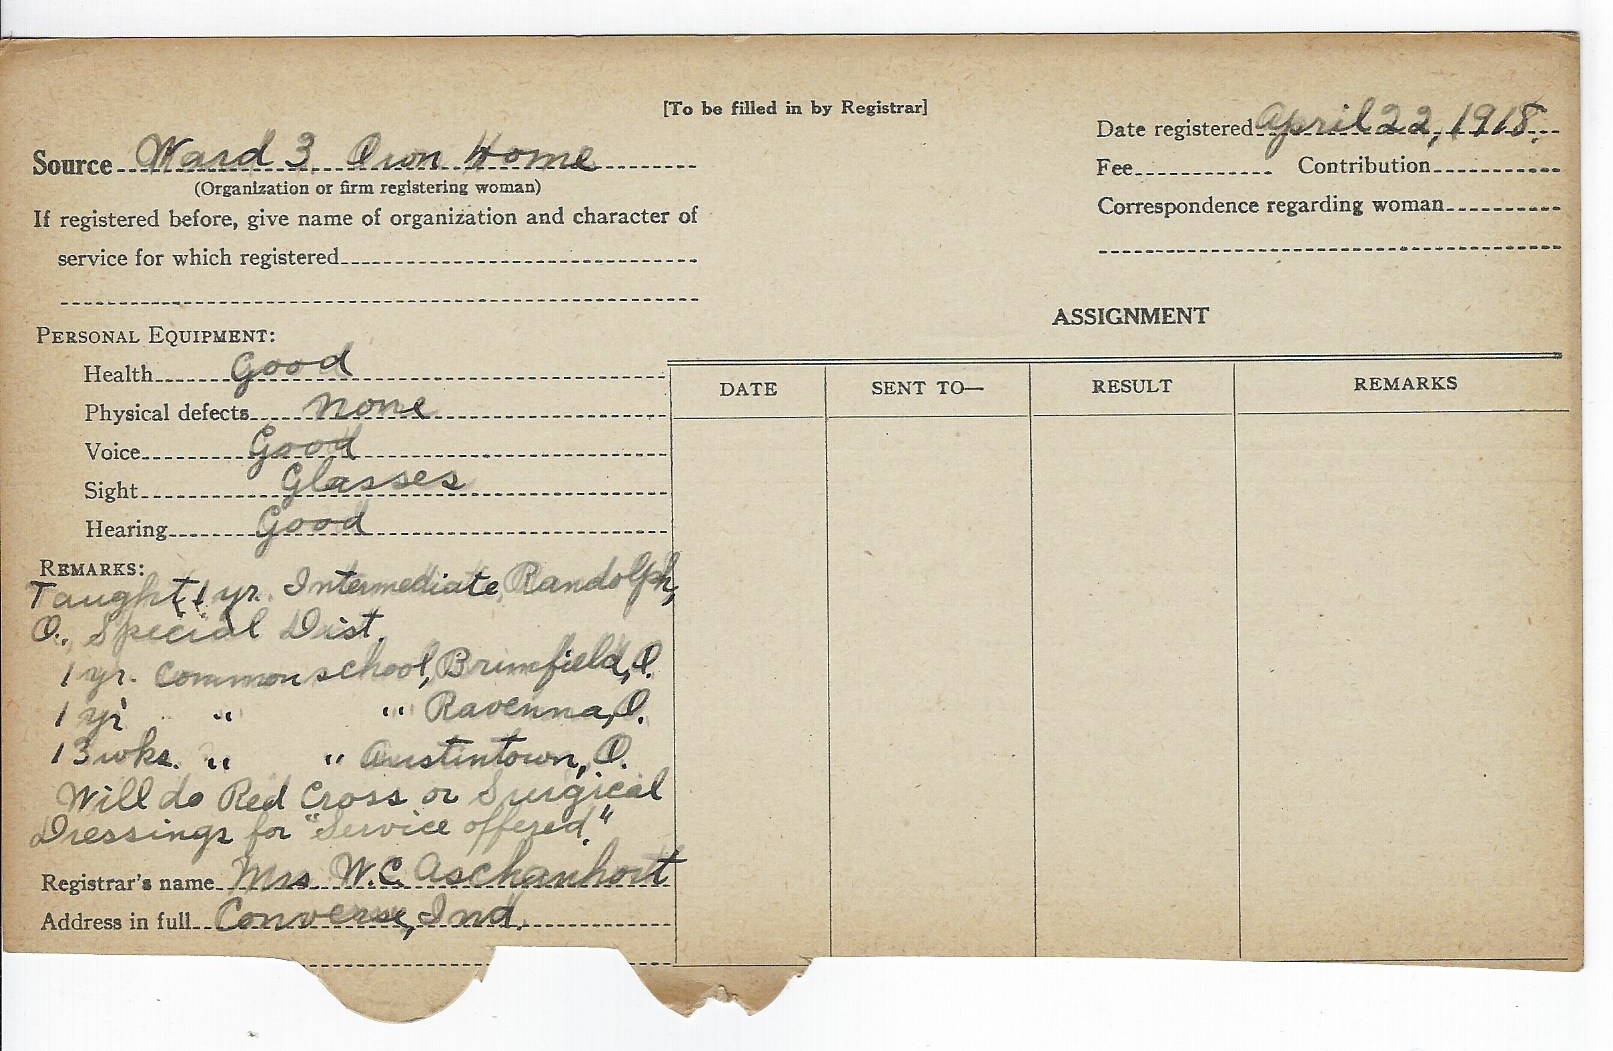 [To be filled in by Registrar]
Date registered April 22, 1918.
Source Ward 3 Own Home
(Organization or firm registering woman)
Fee Contribution
If registered before, give name of organization and character of
Correspondence regarding woman
service for which registered
ASSIGNMENT
PERSONAL EQUIPMENT:
Health Good
DATE SENT TO— RESULT REMARKS
Physical defects none
Voice Good
Sight Glasses
Hearing Good
REMARKS:
Taught 1 yr. Intermediate Randolph,
O., Special Dist.
1 yr. Common school, Brimfield, O.
1 yr " " Ravenna, O.
13 wks. " " Austintown, O.
Will do Red Cross or Surgical
Dressings for "Service offered."
Registrar's name Mrs W.C. Aschanhort
Address in full Converse, Ind.